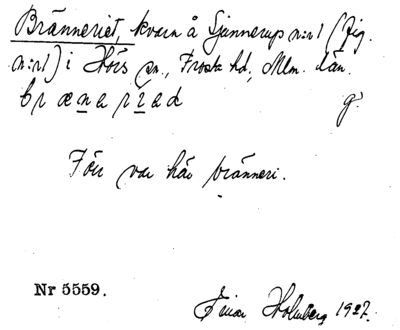 Bränneriet, kvarn å Sjunnerup n:r 1 (fig.
n:r 1) i Hörs sn., Frosta hd, Mlm. län.
brænarıəd g.
Förr var här bränneri.
Nr 5559.
Einar Holmberg 1927.